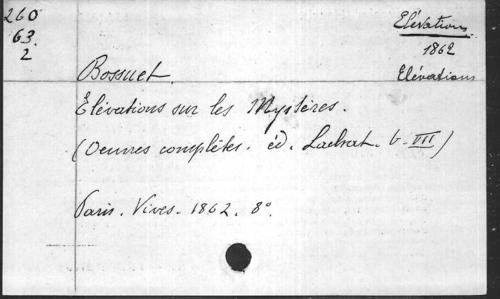 260
63.
2
Elévations
1862
Elévations
Bossuet.
Elévations sur les Mystères.
(Oeuvres complètes. éd. Lachat. t. VII)
Paris. Vivès. 1862. 8°.